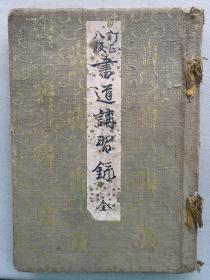 訂正
八版
書道講習録
全